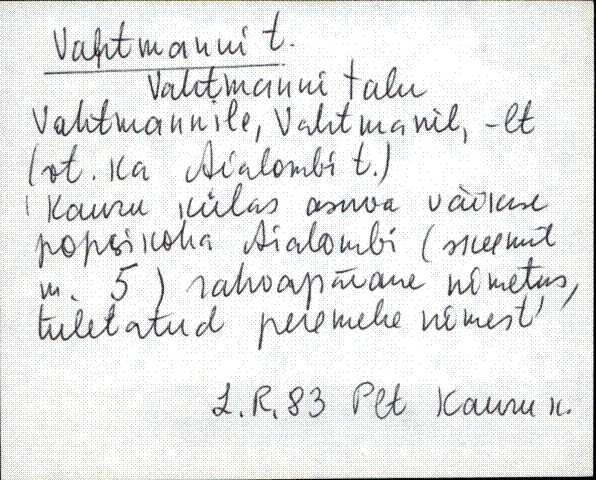 Vahtmanni t.
Vahtmanni talu
Vahtmannile, Vahtmanil, -lt
(vt. ka Aialombi t.)
Kauru külas asuva väikse
popsikoha Aialombi (skeemil
nr. 5) rahvapärane nimetus,
tuletatud peremehe nimest
L.R. 83 Plt Kauru k.